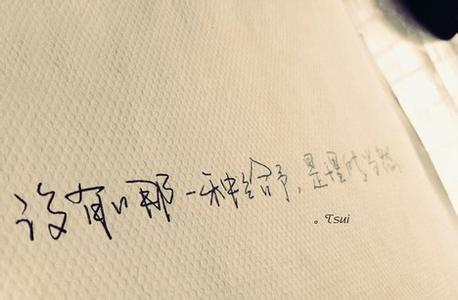 没有哪一种给予，是理所当然
。Tsui